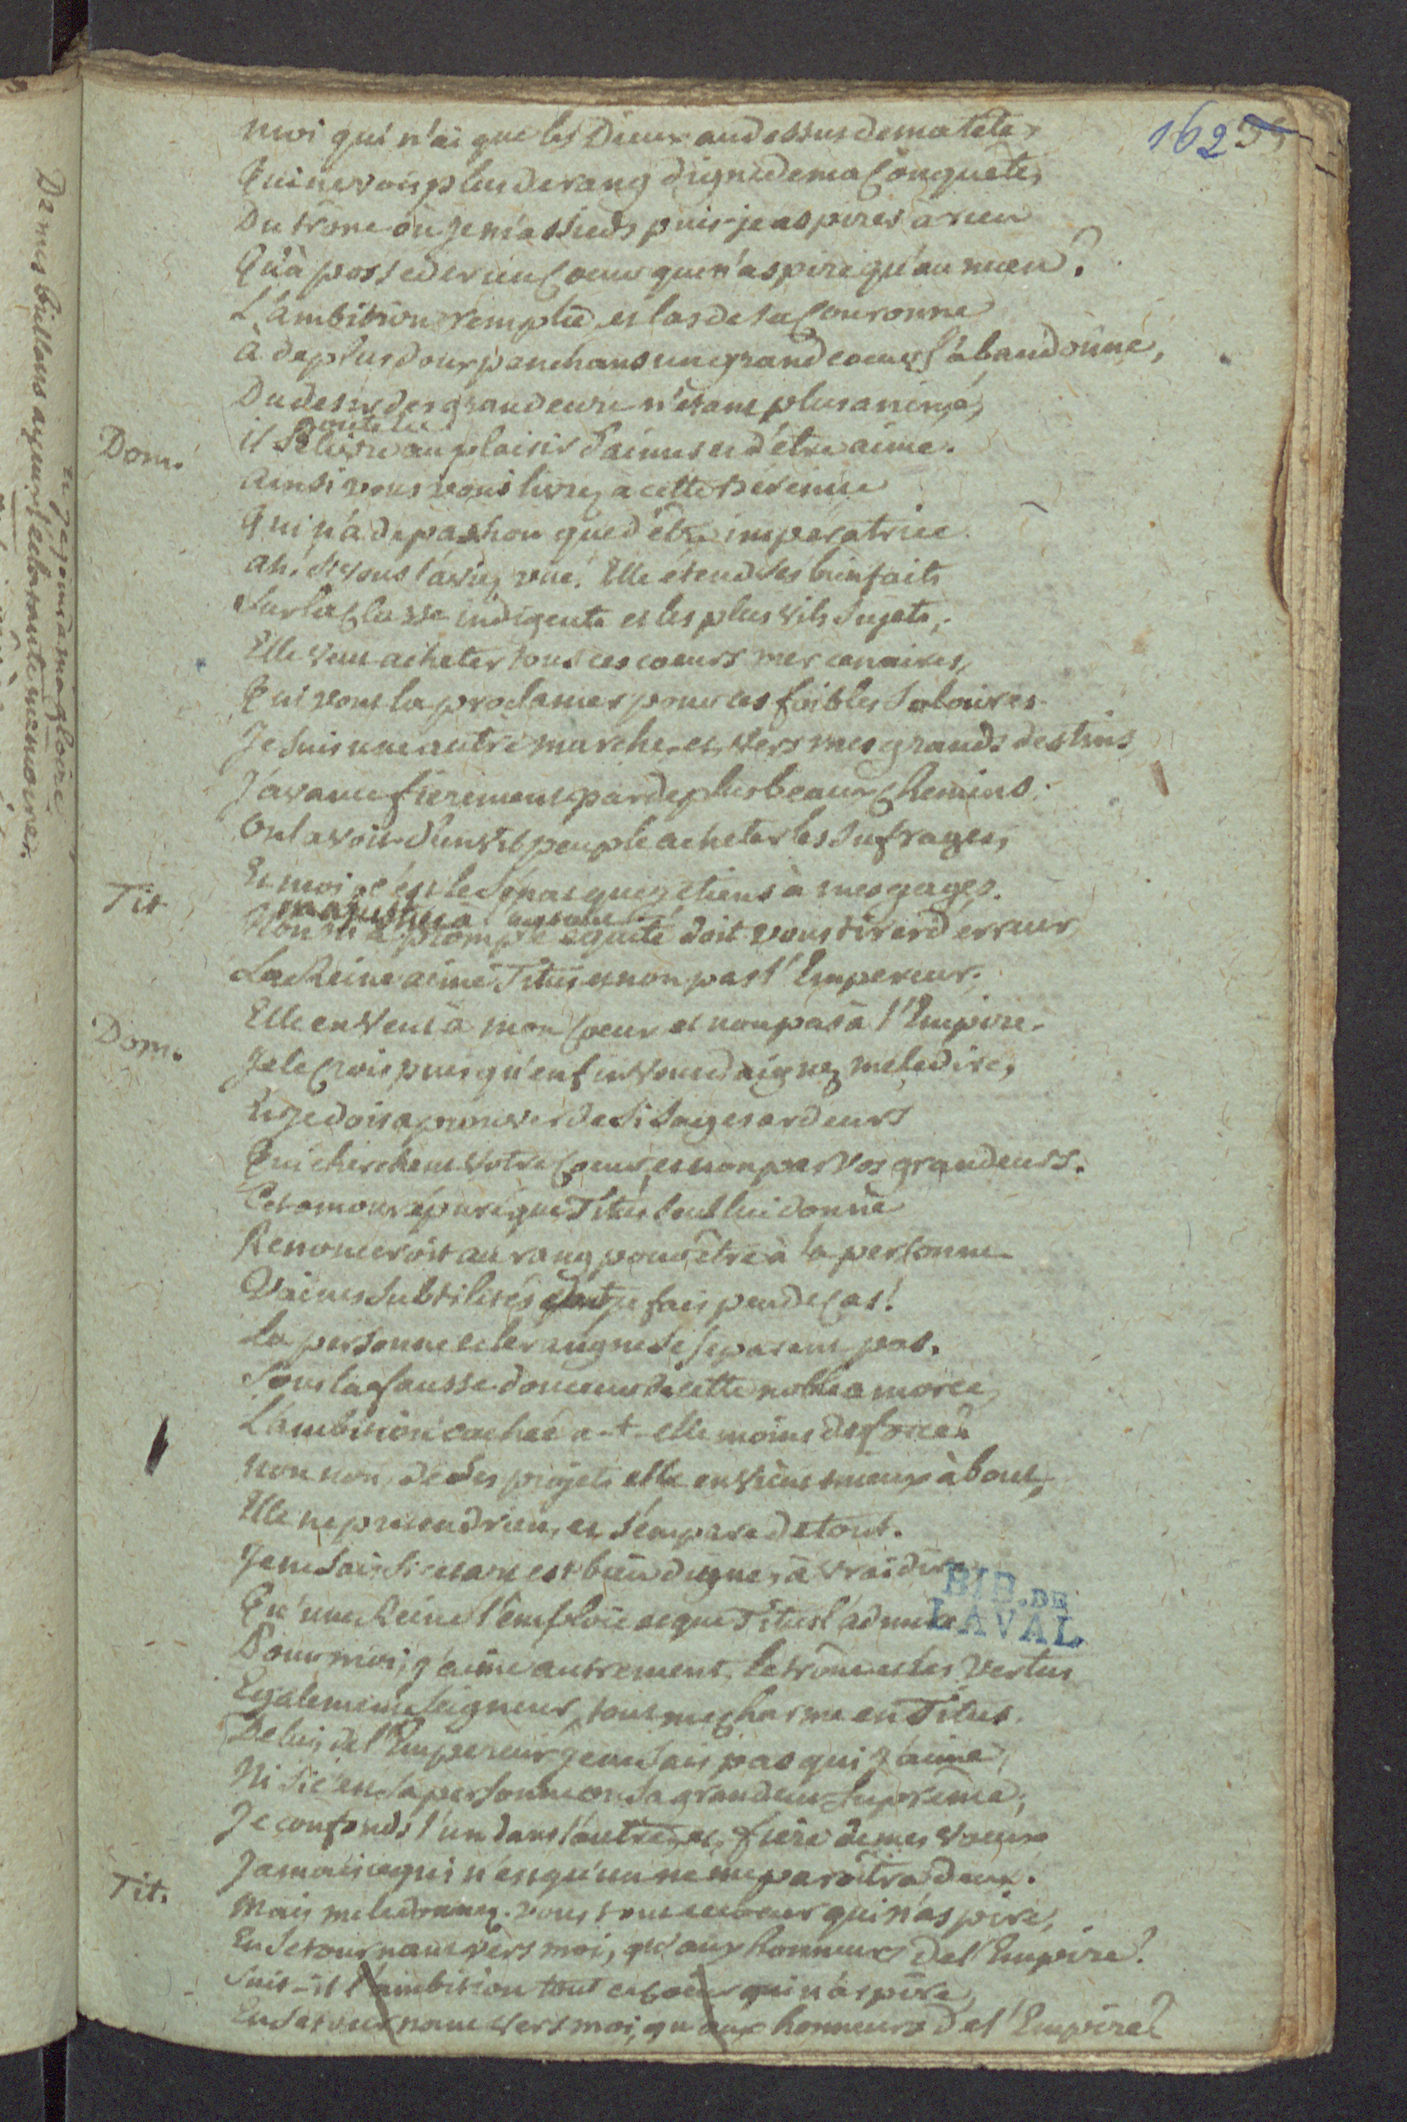 162
moi qui n'ai que les Dieux audessus de ma tête,
Qui ne vois plus de rang digne de ma Conquête,
Du trône ou je m'assieds puis-je aspirer à rien
Qu'à posseder un Coeur qui n'aspire qu'au mien?
L'ambition remplie, et las de sa Couronne
à de plus doux penchans un grand coeur s'abandonne,
Du desir des grandeurs n'étant plus animé,
il se livre au plaisir d'aimer et d'être aimé.
Dom.
ainsi vous vous livrez à cette Bérénice
Qui n'a de passion que d'être impératrice
ah, si vous l'aviez vue! Elle étend ses bienfaits
Sur la Classe indigente et les plus vils Sujets,
Elle veut acheter tous ces coeurs mercenaires,
Qui vont la proclamer pour ces foibles Salaires
Je suis une autre marche, et, vers mes grands destins
J'avance fierement par de plus beaux Chemins.
On la voit d'un vil peuple acheter les Sufrages,
Et moi c'est le Sénat que je tiens à mes gages.
Tit.
ma justice à
Non ma prompte équité doit vous tirer d'erreur
La Reine aime Titus et non pas l'Empereur,
Elle en veut à mon Coeur et non pas à l'Empire.
Dom.
Je le Crois puis qu'enfin vous daignez me le dire,
Et je dois aprouver de si Sages ardeurs
Qui cherchent votre Coeur, et non pas vos grandeurs.
Cet amour épuré que Titus seul lui donne
Renonceroit au rang pour être à la personne
Vaines Subtilités dont je fais peu de Cas!
La personne et le rang ne se séparent pas.
Sous la fausse douceur de cette noble amorce,
L'ambition cachée a-t-elle moins de force?
Non non, de ses projets elle en vient mieux à bout,
Elle ne prétend rien, et s'empare de tout.
Je ne Sais si cet art est bien digne, à vrai dire
Qu'une Reine l'emploie et que Titus l'admire
Pour moi, j'aime autrement, le trône et les Vertus
Egalement Seigneur, tout me Charme en Titus.
De lui, de l'Empereur je ne Sais pas qui j'aime,
Ni si c'est sa personne ou sa grandeur Suprême,
Je confonds l'un dans l'autre, et, fiere de mes voeux
Jamais ce qui n'est qu'un ne me paroîtra deux.
Tit.
Mais me le donnez-vous tout ce coeur qui n'aspire,
En se tournant vers moi, qu'aux honneurs de l'Empire?
Suit-il l'ambition tout ce coeur qui n'aspire,
En se tournant vers moi, qu'aux honneurs de l'Empire?
BIB. DE
LAVAL